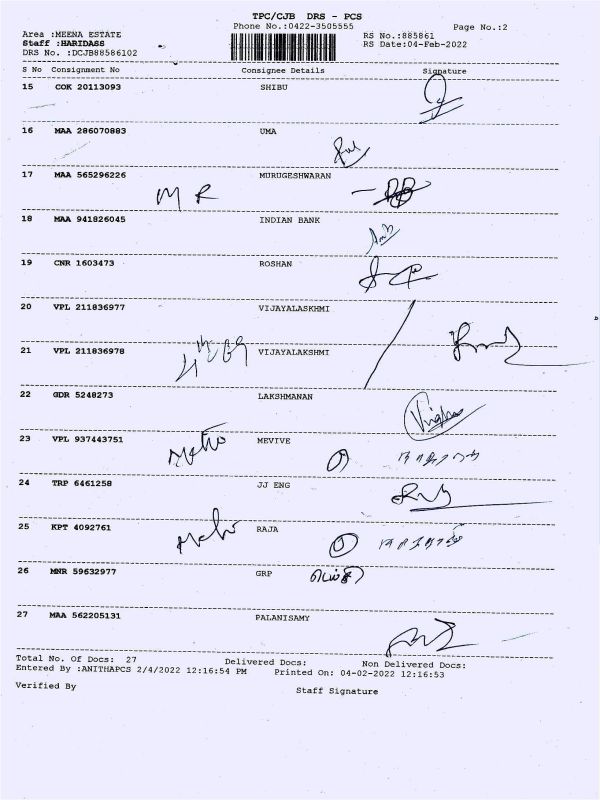 TPC/CJB DRS - PCS
Phone No.:0422-3505555
Page No.:2
Area :MEENA ESTATE
RS No.:885861
Staff :HARIDASS
RS Date:04-Feb-2022
DRS No. :DCJB88586102
S No Consignment No Consignee Details Signature
15 COK 20113093 SHIBU
16 MAA 286070883 UMA
17 MAA 565296226 MURUGESHWARAN
M R
18 MAA 941826045 INDIAN BANK
19 CNR 1603473 ROSHAN
20 VPL 211836977 VIJAYALASKHMI
21 VPL 211836978 VIJAYALAKSHMI
22 GDR 5248273 LAKSHMANAN
23 VPL 937443751 MEVIVE
24 TRP 6461258 JJ ENG
25 KPT 4092761 RAJA
26 MNR 59632977 GRP
27 MAA 562205131 PALANISAMY
Total No. Of Docs: 27 Delivered Docs: Non Delivered Docs:
Entered By :ANITHAPCS 2/4/2022 12:16:54 PM Printed On: 04-02-2022 12:16:53
Verified By Staff Signature